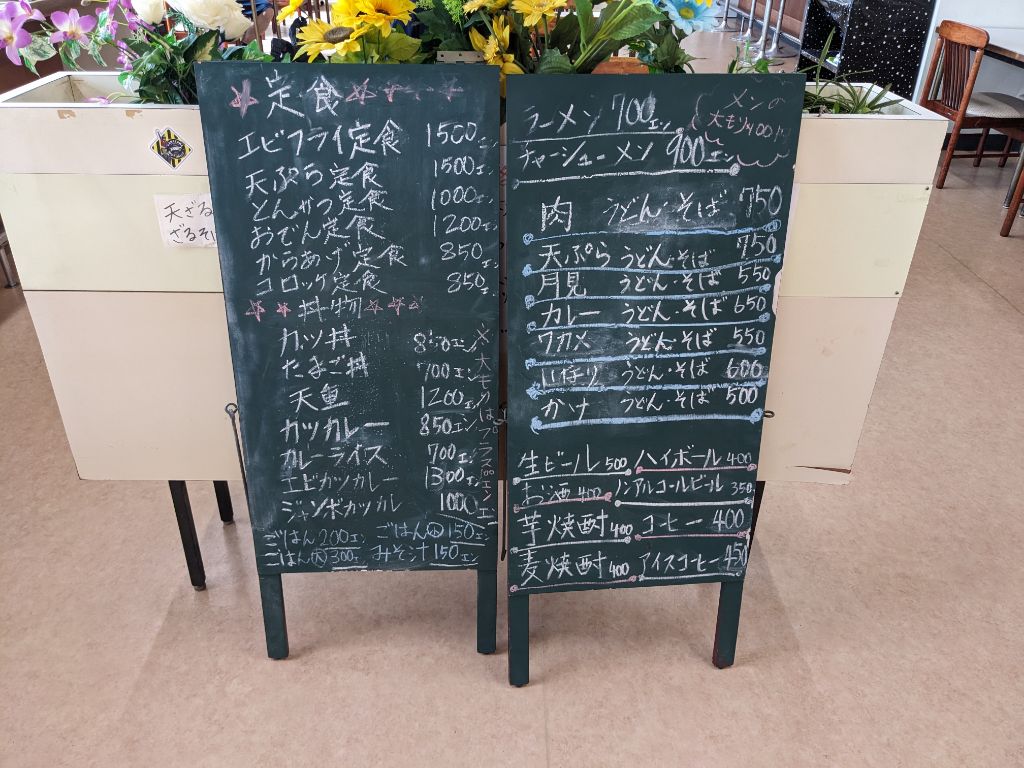 定食
エビフライ定食 1500エン
天ぷら定食 1500エン
とんかつ定食 1000エン
おでん定食 1200エン
からあげ定食 850エン
コロッケ定食 850エン
丼物
カツ丼 850エン
たまご丼 700エン
天重 1200エン
カツカレー 850エン
カレーライス 700エン
エビカツカレー 1300エン
ジャンボカツカレー 1000エン
ごはん200エン ごはん小150エン
ごはん大300エン みそ汁150エン
大もりはプラス
ラーメン 700エン
チャーシューメン 900エン
メンの
大もり100円
肉 うどん・そば 750
天ぷら うどん・そば 750
月見 うどん・そば 550
カレー うどん・そば 650
ワカメ うどん・そば 550
うどん・そば 600
かけ うどん・そば 500
生ビール500 ハイボール400
お酒400 ノンアルコールビール350
芋焼酎400 コーヒー400
麦焼酎400 アイスコーヒー450
天ざる
ざるそ